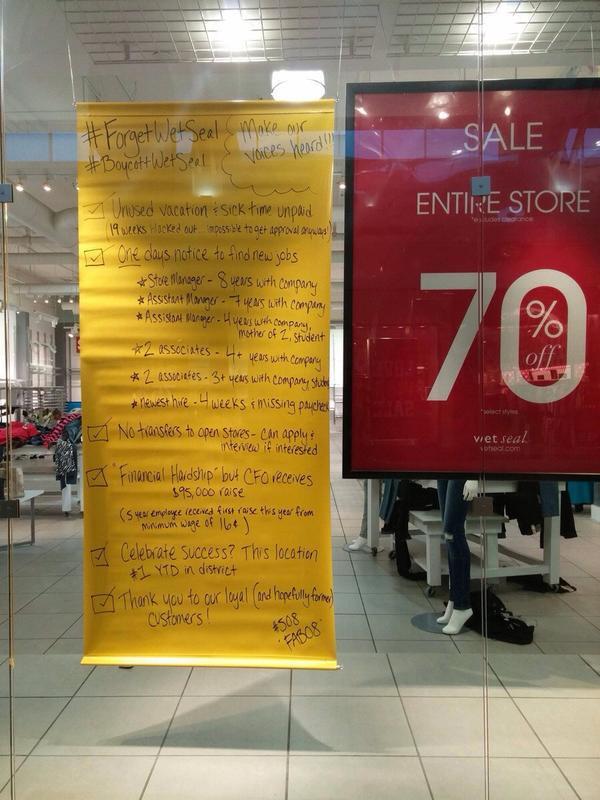 #ForgetWetSeal
#BoycottWetSeal
Make our
voices heard!!!
Unused vacation & sick time unpaid
(19 weeks blacked out... impossible to get approval anyways!)
One days notice to find new jobs
Store Manager - 8 years with company
Assistant Manager - 7 years with company
Assistant Manager - 4 years with company,
mother of 2, student
2 associates - 4+ years with company
2 associates - 3+ years with company, student
newest hire - 4 weeks & missing paycheck
No transfers to open stores - can apply &
interview if interested
"Financial Hardship" but CFO receives
$95,000 raise
(5 year employee received first raise this year from
minimum wage of 16¢)
Celebrate success? This location
#1 YTD in district
Thank you to our loyal (and hopefully former)
customers!
#508
FAB08
SALE
ENTIRE STORE
*excludes clearance
70% off
*select styles
wet seal.
wetseal.com